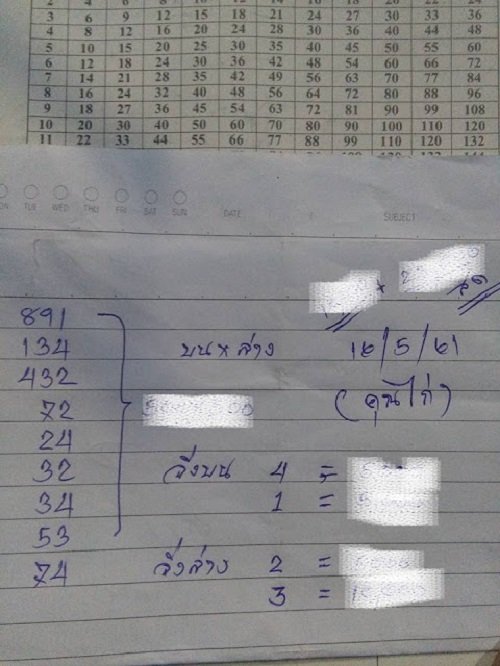 3 6 9 12 15 18 21 24 27 30 33 36
4 8 12 16 20 24 28 30 36 40 44 48
5 10 15 20 25 30 35 40 45 50 55 60
6 12 18 24 30 36 42 48 54 60 66 72
7 14 21 28 35 42 49 56 63 70 77 84
8 16 24 32 40 48 56 64 72 80 88 96
9 18 27 36 45 54 63 72 81 90 99 108
10 20 30 40 50 60 70 80 90 100 110 120
11 22 33 44 55 66 77 88 99 110 120 132
TUE WED THU FRI SAT SUN DATE SUBJECT
891
134 บน x ล่าง 16/5/61
432
72 (คุณไก่)
24
32 วิ่งบน 4 =
34 1 =
53
74 วิ่งล่าง 2 =
3 =